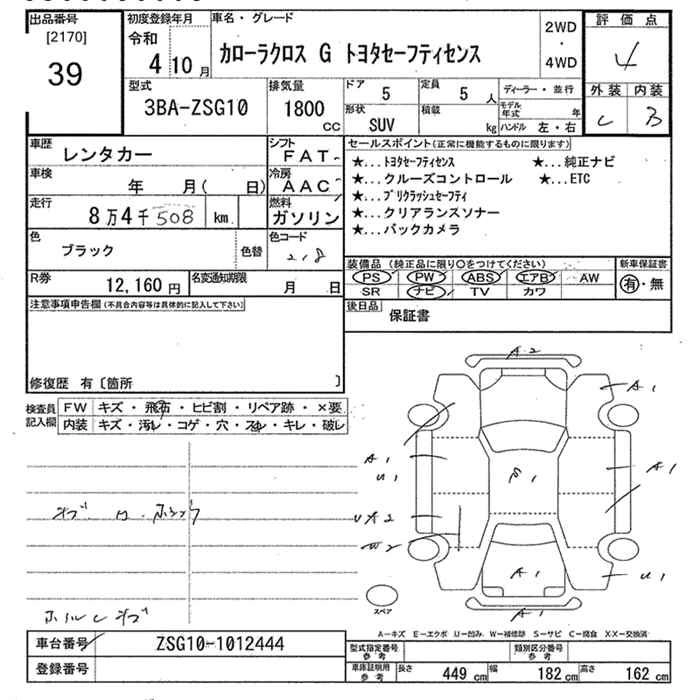 出品番号 初度登録年月 車名・グレード 評価点
[2170] 令和 2WD
39 4 10月 カローラクロス G トヨタセーフティセンス ・ 4
4WD
型式 排気量 ドア 定員 ディーラー・並行 外装 内装
3BA-ZSG10 1800 CC 5 5人 モデル年式 年 C B
形状 SUV 積載 kg ハンドル 左・右
車歴 レンタカー シフト FAT セールスポイント(正常に機能するものに限ります)
車検 年 月( 日) 冷房 AAC ★...トヨタセーフティセンス ★...純正ナビ
★...クルーズコントロール ★...ETC
走行 8万4千508 km 燃料 ガソリン ★...プリクラッシュセーフティ
★...クリアランスソナー
色 ブラック 色替 色コード 218 ★...バックカメラ
R券 12,160円 名変通知期限 月 日 装備品(純正品に限り○をつけてください) 新車保証書
PS PW ABS エアB AW 有・無
SR ナビ TV カワ
注意事項申告欄(不具合内容等は具体的に記入して下さい) 後日品 保証書
修復歴 有〔箇所 〕
検査員記入欄 FW キズ・飛石・ヒビ割・リペア跡・×要
内装 キズ・汚レ・コゲ・穴・スレ・キレ・破レ
A2
A1
A1 A1
U1
A1
U1
A1
A1
スペア
A-キズ E-エクボ U-凹み W-補修跡 S-サビ C-腐食 XX-交換済
車台番号 ZSG10-1012444 型式指定番号参考 類別区分番号参考
登録番号 車庫証明用参考 長さ 449cm 幅 182cm 高さ 162cm